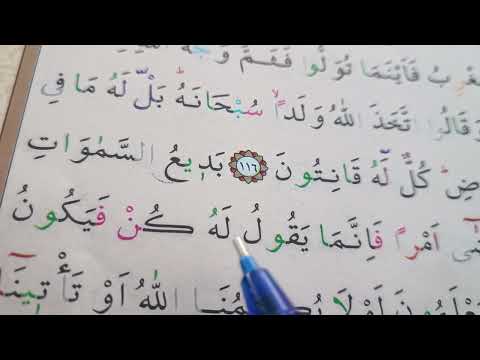 غْرِبُ فَاَيْنَمَا تُوَلُّوا فَثَمَّ وَجْهُ
وَقَالُوا تَّخَذَ اللّٰهُ وَلَدًا سُبْحَانَهُ بَلْ لَهُ مَا فِي
ضِ كُلٌّ لَهُ قَانِتُونَ ١١٦ بَدِيعُ السَّمٰوَاتِ
اَمْرًا فَاِنَّمَا يَقُولُ لَهُ كُنْ فَيَكُونُ
اللّٰهُ اَوْ تَأْتِينَا